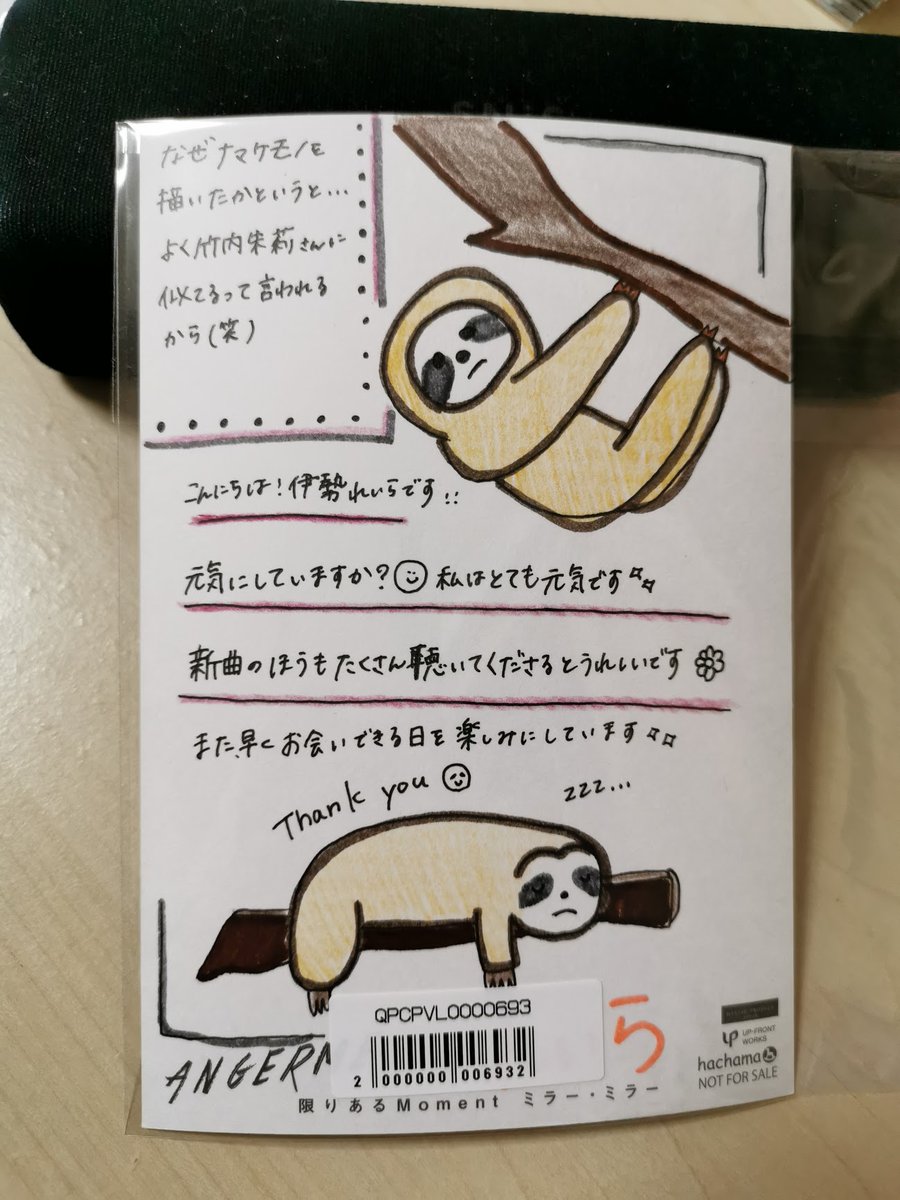 なぜナマケモノを
描いたかというと...
よく竹内朱莉さんに
似てるって言われる
から(笑)
こんにちは!伊勢れいらです!!
元気にしていますか?私はとても元気です
新曲のほうもたくさん聴いてくださるとうれしいです
また、早くお会いできる日を楽しみにしています
Thank you
zzz...
QPCPVL0000693
2 000000 006932
ら
ANGERM
限りあるMoment ミラー・ミラー
UP-FRONT
WORKS
hachama
NOT FOR SALE